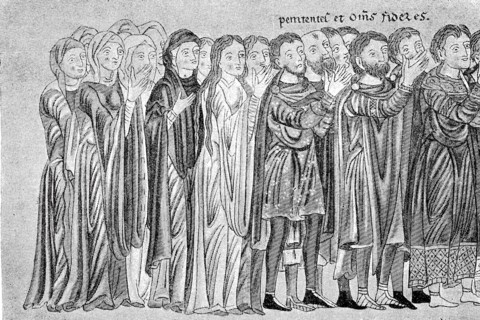 penitentes et Om̅s fideles.